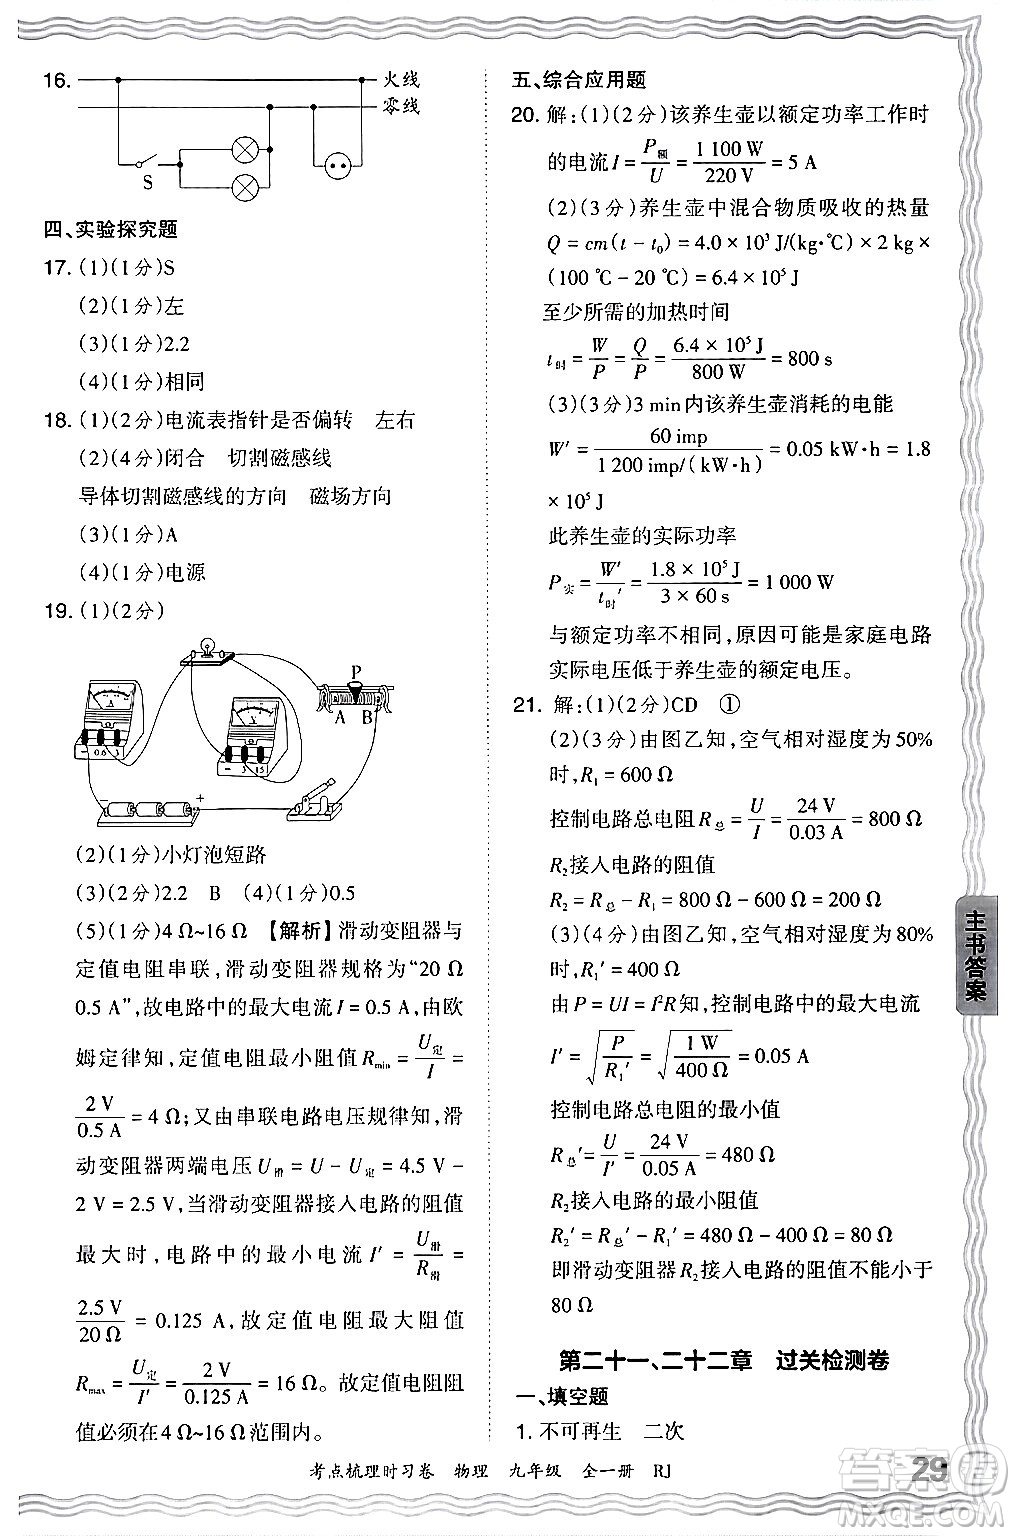 16.
火线
零线
S
四、实验探究题
17. (1)(1分)S
(2)(1分)左
(3)(1分)2.2
(4)(1分)相同
18. (1)(2分)电流表指针是否偏转 左右
(2)(4分)闭合 切割磁感线
导体切割磁感线的方向 磁场方向
(3)(1分)A
(4)(1分)电源
19. (1)(2分)
P
A B
A
V
- 0.6 3
- 3 15
- +
(2)(1分)小灯泡短路
(3)(2分)2.2 B (4)(1分)0.5
(5)(1分)4 Ω~16 Ω 【解析】滑动变阻器与
定值电阻串联,滑动变阻器规格为“20 Ω
0.5 A”,故电路中的最大电流 I = 0.5 A,由欧
姆定律知,定值电阻最小阻值 Rmin = U定/I =
2 V/0.5 A = 4 Ω;又由串联电路电压规律知,滑
动变阻器两端电压 U滑 = U - U定 = 4.5 V -
2 V = 2.5 V,当滑动变阻器接入电路的阻值
最大时,电路中的最小电流 I′ = U滑/R滑 =
2.5 V/20 Ω = 0.125 A,故定值电阻最大阻值
Rmax = U定/I′ = 2 V/0.125 A = 16 Ω。故定值电阻阻
值必须在 4 Ω~16 Ω 范围内。
五、综合应用题
20. 解:(1)(2分)该养生壶以额定功率工作时
的电流 I = P额/U = 1 100 W/220 V = 5 A
(2)(3分)养生壶中混合物质吸收的热量
Q = cm(t - t₀) = 4.0 × 10³ J/(kg·℃) × 2 kg ×
(100 ℃ - 20 ℃) = 6.4 × 10⁵ J
至少所需的加热时间
t时 = W/P = Q/P = 6.4 × 10⁵ J/800 W = 800 s
(3)(3分)3 min内该养生壶消耗的电能
W′ = 60 imp/1 200 imp/(kW·h) = 0.05 kW·h = 1.8
× 10⁵ J
此养生壶的实际功率
P实 = W′/t时′ = 1.8 × 10⁵ J/3 × 60 s = 1 000 W
与额定功率不相同,原因可能是家庭电路
实际电压低于养生壶的额定电压。
21. 解:(1)(2分)CD ①
(2)(3分)由图乙知,空气相对湿度为50%
时,R₁ = 600 Ω
控制电路总电阻 R总 = U/I = 24 V/0.03 A = 800 Ω
R₂接入电路的阻值
R₂ = R总 - R₁ = 800 Ω - 600 Ω = 200 Ω
(3)(4分)由图乙知,空气相对湿度为80%
时,R₁′ = 400 Ω
由 P = UI = I²R知,控制电路中的最大电流
I′ = √(P/R₁′) = √(1 W/400 Ω) = 0.05 A
控制电路总电阻的最小值
R总′ = U/I′ = 24 V/0.05 A = 480 Ω
R₂接入电路的最小阻值
R₂′ = R总′ - R₁′ = 480 Ω - 400 Ω = 80 Ω
即滑动变阻器 R₂接入电路的阻值不能小于
80 Ω
第二十一、二十二章 过关检测卷
一、填空题
1. 不可再生 二次
主书答案
考点梳理时习卷 物理 九年级 全一册 RJ
29
答案圈
MXQE.COM